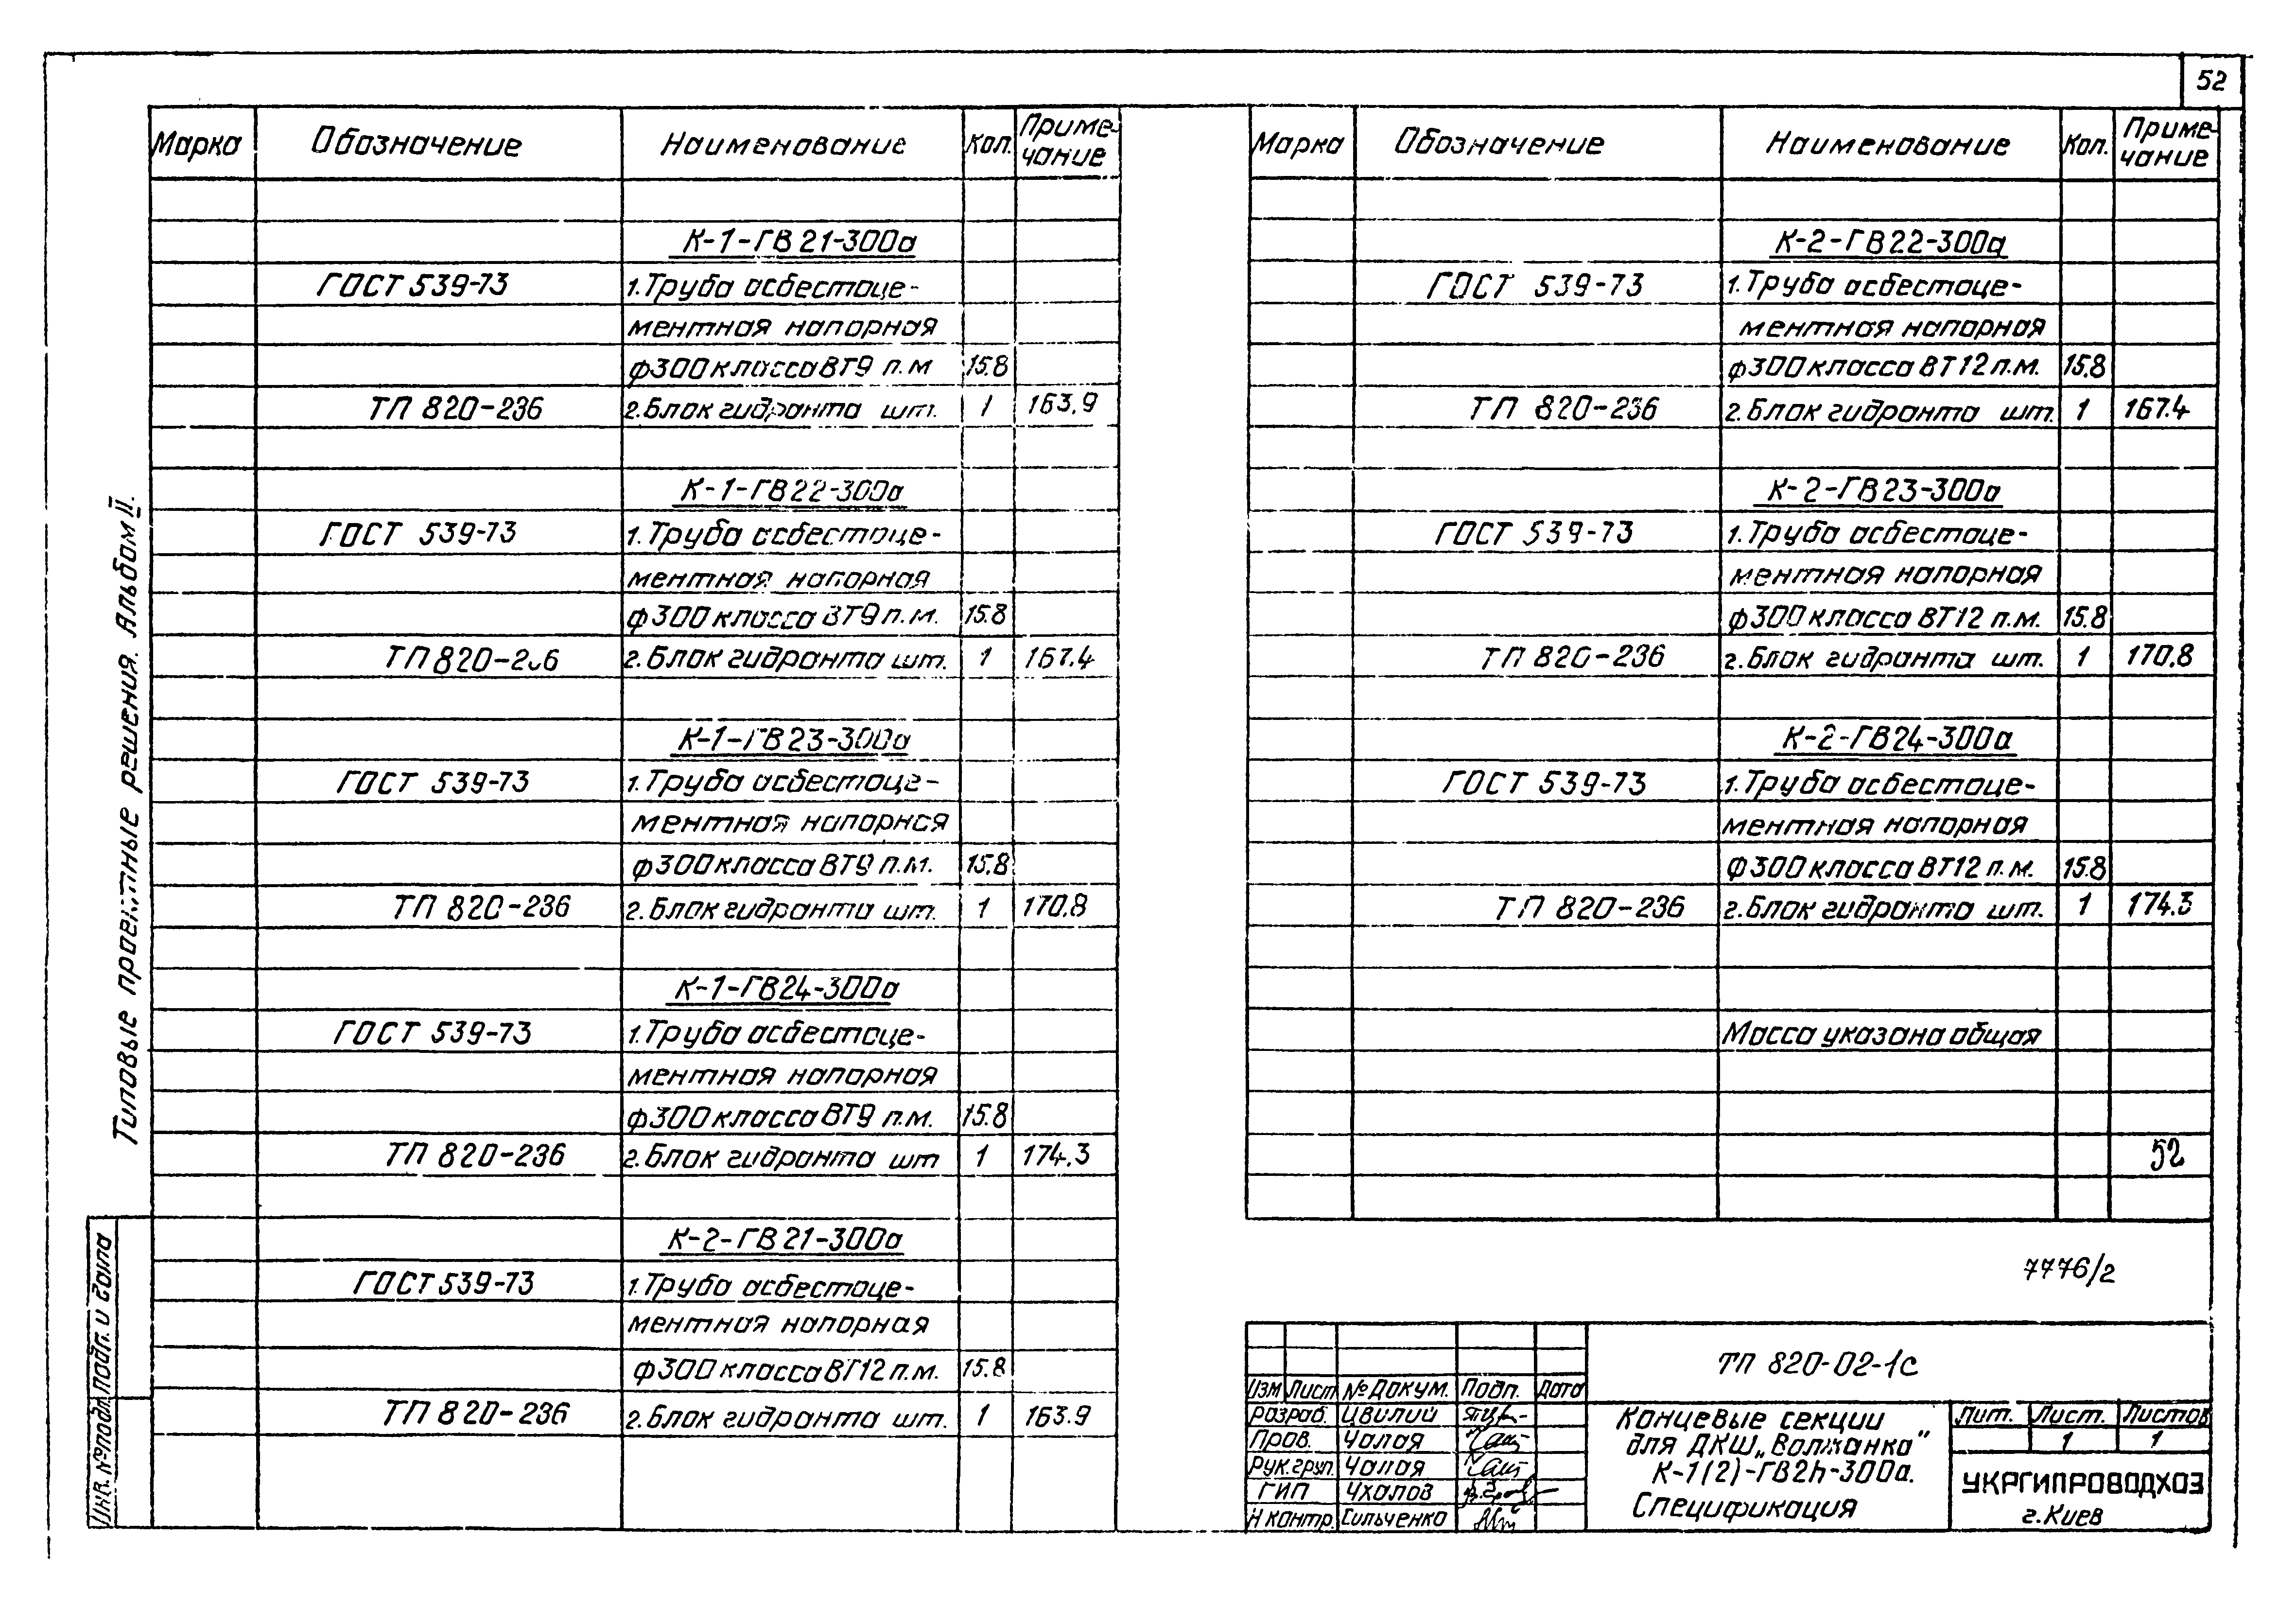 52
Марка Обозначение Наименование Кол. Приме-
чание
К-1-ГВ21-300а
ГОСТ 539-73 1.Труба асбестоце-
ментная напорная
ф300 класса ВТ9 п.м 15.8
ТП 820-236 2.Блок гидранта шт. 1 163.9
К-1-ГВ22-300а
ГОСТ 539-73 1.Труба асбестоце-
ментная напорная
ф300 класса ВТ9 п.м. 15.8
ТП 820-236 2.Блок гидранта шт. 1 167.4
К-1-ГВ23-300а
ГОСТ 539-73 1.Труба асбестоце-
ментная напорная
ф300 класса ВТ9 п.м. 15.8
ТП 820-236 2.Блок гидранта шт. 1 170.8
К-1-ГВ24-300а
ГОСТ 539-73 1.Труба асбестоце-
ментная напорная
ф300 класса ВТ9 п.м. 15.8
ТП 820-236 2.Блок гидранта шт 1 174.3
К-2-ГВ21-300а
ГОСТ 539-73 1.Труба асбестоце-
ментная напорная
ф300 класса ВТ12 п.м. 15.8
ТП 820-236 2.Блок гидранта шт. 1 163.9
Марка Обозначение Наименование Кол. Приме-
чание
К-2-ГВ22-300а
ГОСТ 539-73 1.Труба асбестоце-
ментная напорная
ф300 класса ВТ12 п.м. 15.8
ТП 820-236 2.Блок гидранта шт. 1 167.4
К-2-ГВ23-300а
ГОСТ 539-73 1.Труба асбестоце-
ментная напорная
ф300 класса ВТ12 п.м. 15.8
ТП 820-236 2.Блок гидранта шт. 1 170.8
К-2-ГВ24-300а
ГОСТ 539-73 1.Труба асбестоце-
ментная напорная
ф300 класса ВТ12 п.м. 15.8
ТП 820-236 2.Блок гидранта шт. 1 174.3
Масса указана общая
52
7776/2
ТП 820-02-1с
Изм Лист № Докум. Подп. Дата
Разраб. Цвилий
Пров. Чалая
Рук.груп. Чалая
ГИП Чхалов
Н контр. Сильченко
Концевые секции
для ДКШ „Волжанка"
К-1(2)-ГВ2h-300а.
Спецификация
Лит. Лист. Листов
1 1
УКРГИПРОВОДХОЗ
г.Киев
Типовые проектные решения. Альбом II.
Инв. №подл. Подп. и дата